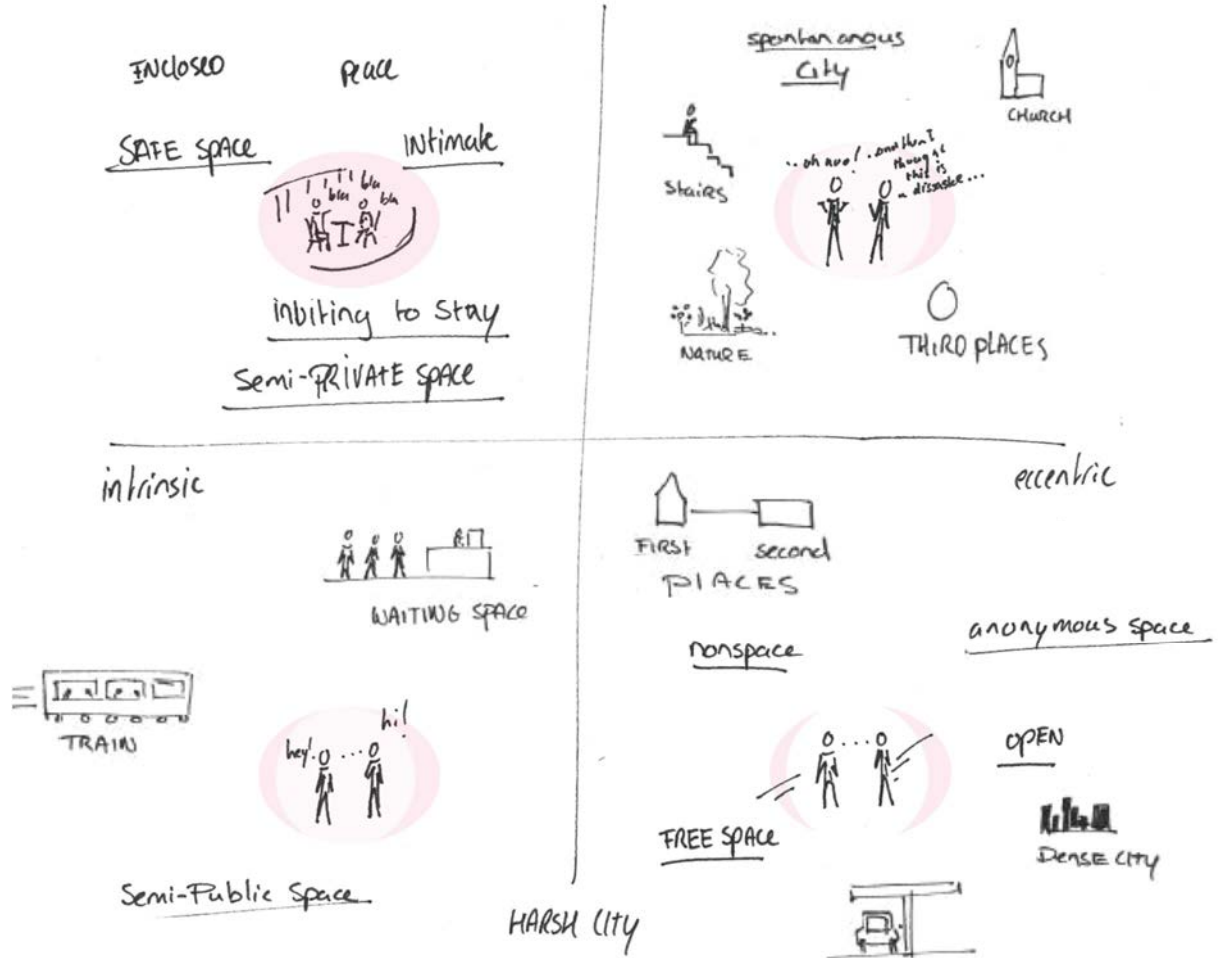 ENCLOSED
peace
SAFE SPACE
intimate
bla
bla
bla
bla
inbiting to stay
Semi-PRIVATE SPACE
spontananous
City
CHURCH
stairs
..oh noo!
..and then I
thought
this is
a dissaster...
NATURE
THIRD PLACES
intrinsic
eccentric
WAITING SPACE
TRAIN
hey!
...
hi!
Semi-Public Space
FIRST
second
PLACES
nonspace
anonymous space
...
OPEN
FREE SPACE
DENSE CITY
HARSH CITY